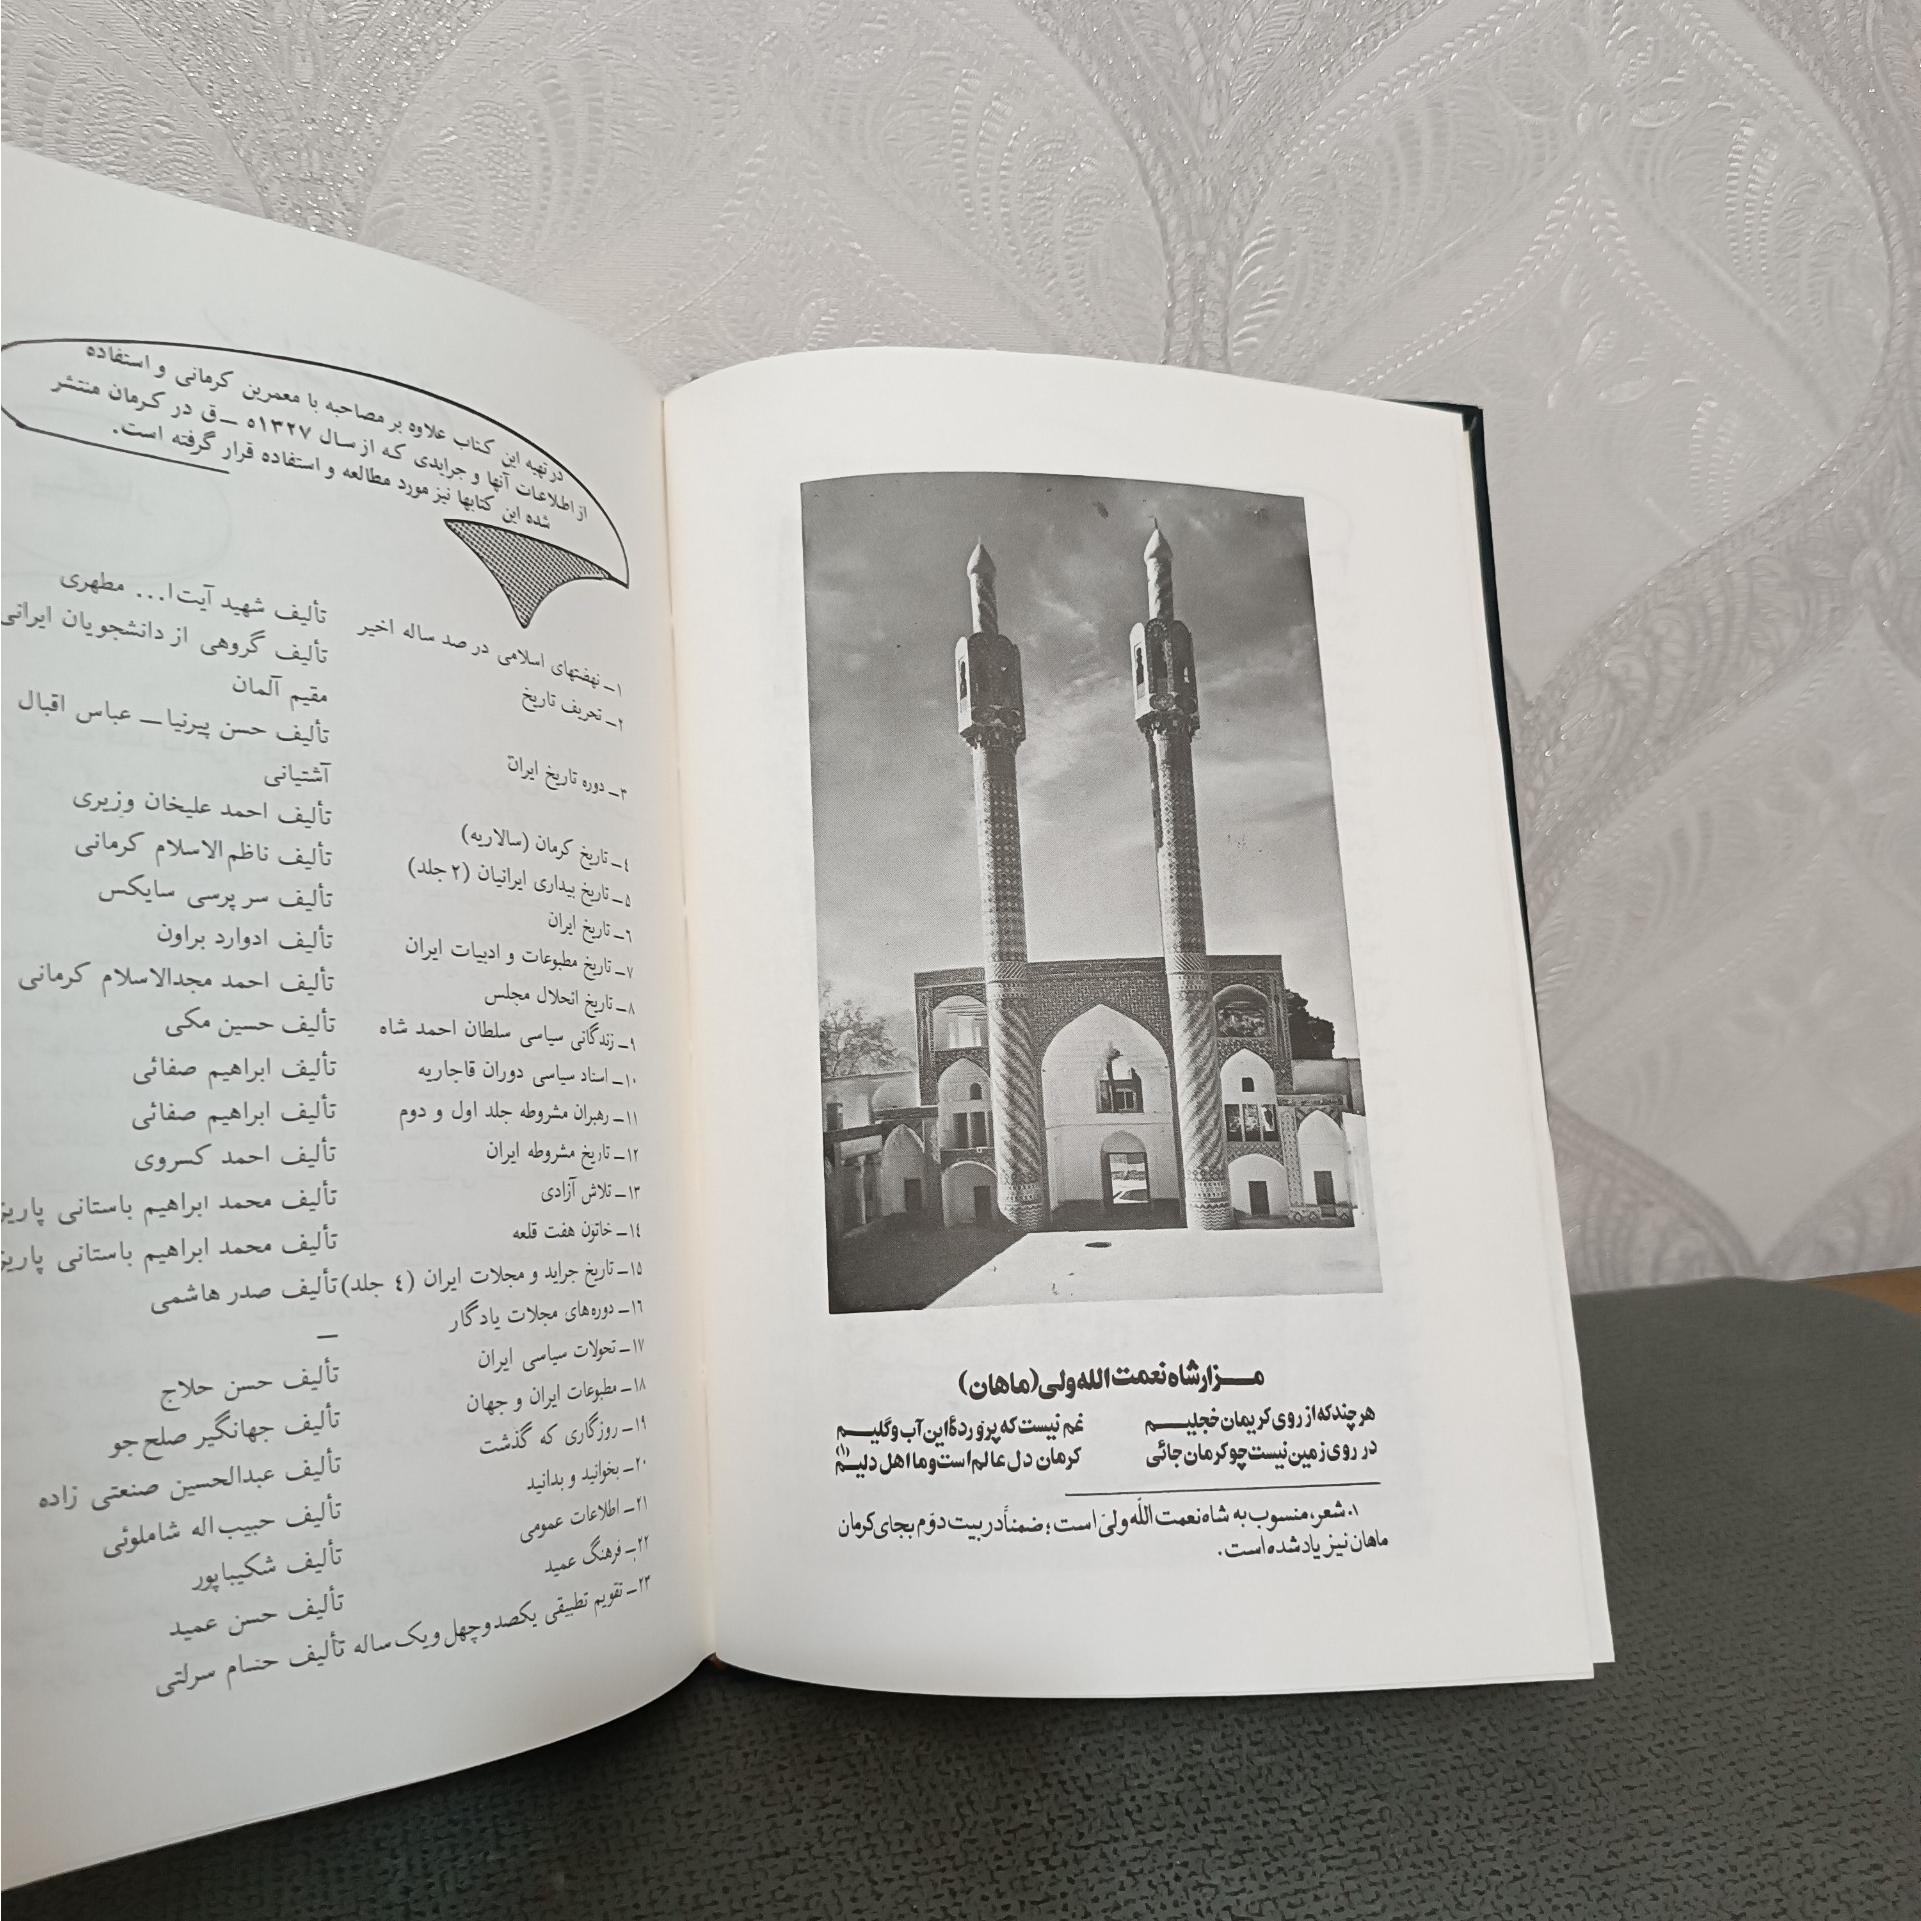 مزارشاه نعمت الله ولی (ماهان)
هرچند که از روی کریمان خجلیم غم نیست که پرورده‌ٔ این آب و گلیم
در روی زمین نیست چو کرمان جائی کرمان دل عالم است و ما اهل دلیم (۱)
۱. شعر، منسوب به شاه نعمت اللّه ولیّ است؛ ضمناً در بیت دوّم بجای کرمان
ماهان نیز یاد شده است.
در تهیه این کتاب علاوه بر مصاحبه با معمرین کرمانی و استفاده
از اطلاعات آنها و جرایدی که از سال ۱۳۲۷ه ــ ق در کرمان منتشر
شده این کتابها نیز مورد مطالعه و استفاده قرار گرفته است.
۱ــ نهضتهای اسلامی در صد ساله اخیر تألیف شهید آیت‌ا... مطهری
۲ــ تحریف تاریخ تألیف گروهی از دانشجویان ایرانی
مقیم آلمان
۳ــ دوره تاریخ ایران تألیف حسن پیرنیا ــ عباس اقبال
آشتیانی
۴ــ تاریخ کرمان (سالاریه) تألیف احمد علیخان وزیری
۵ــ تاریخ بیداری ایرانیان (۲ جلد) تألیف ناظم‌الاسلام کرمانی
۶ــ تاریخ ایران تألیف سر پرسی سایکس
۷ــ تاریخ مطبوعات و ادبیات ایران تألیف ادوارد براون
۸ــ تاریخ انحلال مجلس تألیف احمد مجدالاسلام کرمانی
۹ــ زندگانی سیاسی سلطان احمد شاه تألیف حسین مکی
۱۰ــ اسناد سیاسی دوران قاجاریه تألیف ابراهیم صفائی
۱۱ــ رهبران مشروطه جلد اول و دوم تألیف ابراهیم صفائی
۱۲ــ تاریخ مشروطه ایران تألیف احمد کسروی
۱۳ــ تلاش آزادی تألیف محمد ابراهیم باستانی پاریز
۱۴ــ خاتون هفت قلعه تألیف محمد ابراهیم باستانی پاریز
۱۵ــ تاریخ جراید و مجلات ایران (۴ جلد) تألیف صدر هاشمی
۱۶ــ دوره‌های مجلات یادگار ــ
۱۷ــ تحولات سیاسی ایران تألیف حسن حلاج
۱۸ــ مطبوعات ایران و جهان تألیف جهانگیر صلح‌جو
۱۹ــ روزگاری که گذشت تألیف عبدالحسین صنعتی زاده
۲۰ــ بخوانید و بدانید تألیف حبیب‌اله شاملوئی
۲۱ــ اطلاعات عمومی تألیف شکیباپور
۲۲ــ فرهنگ عمید تألیف حسن عمید
۲۳ــ تقویم تطبیقی یکصد و چهل و یک ساله تألیف حسام سرلتی